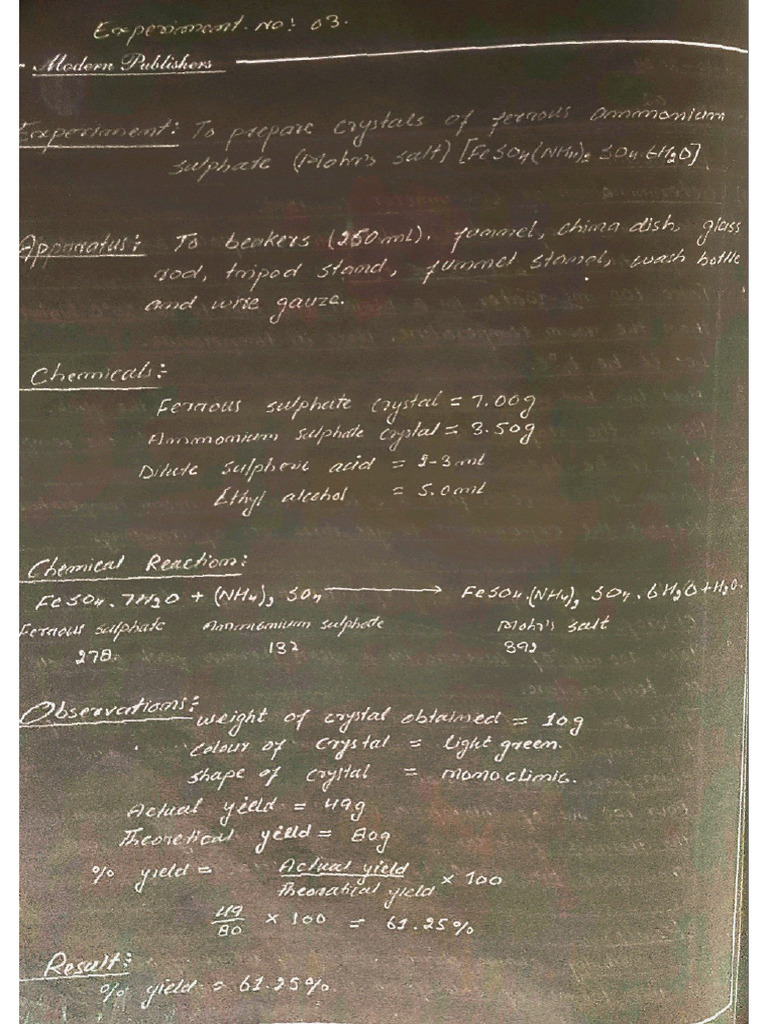 Experiment. No: 03.
Modern Publishers
Experiment: To prepare crystals of ferrous ammonium
sulphate (Mohr's salt) [FeSO4(NH4)2 SO4.6H2O]
Apparatus: To beakers (250ml). funnel, china dish, glass
rod, tripod stand, funnel stand, wash bottle
and wire gauze.
Chemicals:-
Ferrous sulphate crystal = 7.00g
Ammonium sulphate crystal = 3.50g
Dilute sulpheric acid = 2-3ml
Ethyl alcohol = 5.0ml
Chemical Reaction:
FeSO4.7H2O + (NH4)2 SO4 → FeSO4.(NH4)2 SO4.6H2O+H2O.
Ferrous sulphate Ammonium sulphate Mohr's salt
278. 132 392
Observations:
weight of crystal obtained = 10g
colour of crystal = light green.
shape of crystal = monoclinic.
Actual yield = 49g
Theoretical yield = 80g
% yield = Actual yield / Theoratical yield × 100
49/80 × 100 = 61.25%
Result:
% yield = 61.25%.